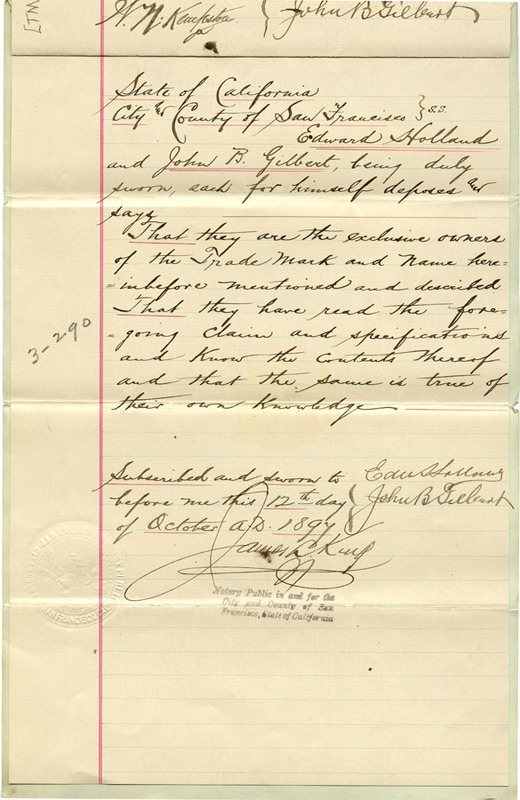 [TM]
W. N. Kempston
John B Gilbert
State of California
City and County of San Francisco } s.s.
Edward Holland
and John B. Gilbert, being duly
sworn, each for himself deposes and
says
That they are the exclusive owners
of the Trade Mark and Name here=
=inbefore mentioned and described
That they have read the fore=
=going Claim and specifications
and Know the Contents thereof
and that the same is true of
their own Knowledge
3-290
Subscribed and sworn to
before me this 12th day
of October A.D. 1897
Edw Holland
John B Gilbert
James L. King
Notary Public in and for the
City and County of San
Francisco, State of California